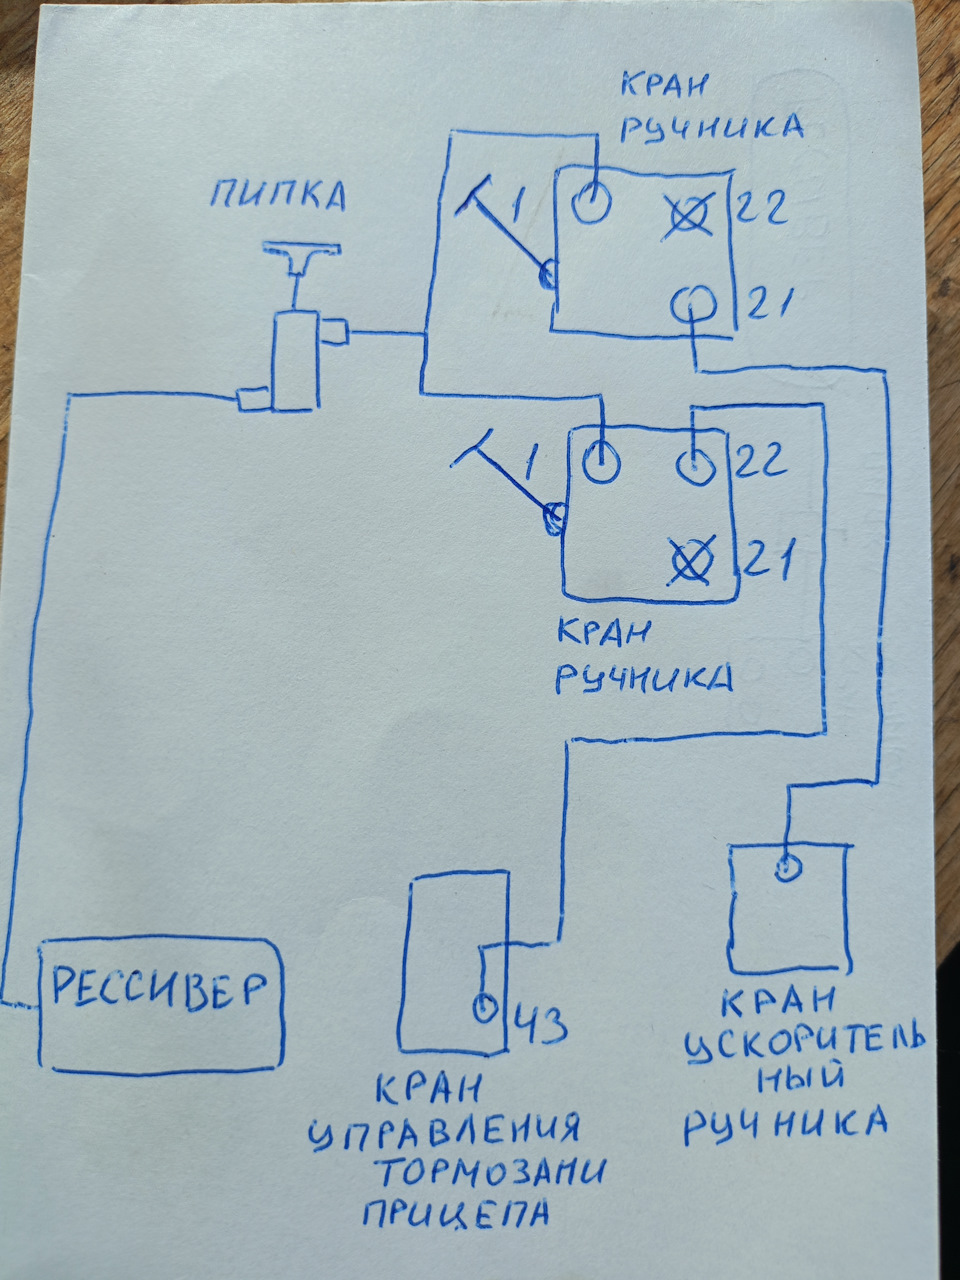 КРАН
РУЧНИКА
ПИПКА
1
22
21
1
22
21
КРАН
РУЧНИКА
РЕССИВЕР
43
КРАН
УПРАВЛЕНИЯ
ТОРМОЗАМИ
ПРИЦЕПА
КРАН
УСКОРИТЕЛЬ
НЫЙ
РУЧНИКА